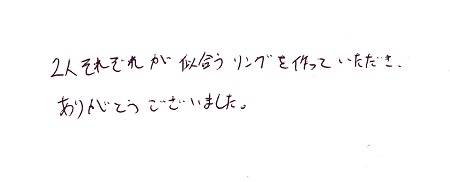 2人それぞれが似合うリングを作っていただき、
ありがとうございました。